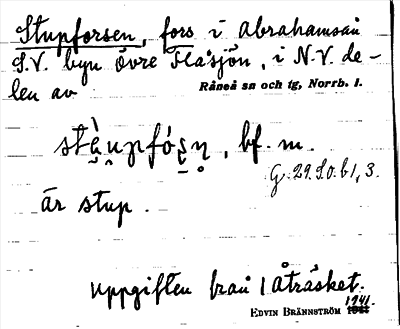 Stupforsen, fors i Abrahamsån
S.V. byn Övre Flåsjön, i N.V. de-
len av Råneå sn och tg, Norrb. l.
bf. m.
G. 29. S.O. b 1, 3.
är stup.
Uppgiften från Åträsket.
1941.
EDVIN BRÄNNSTRÖM